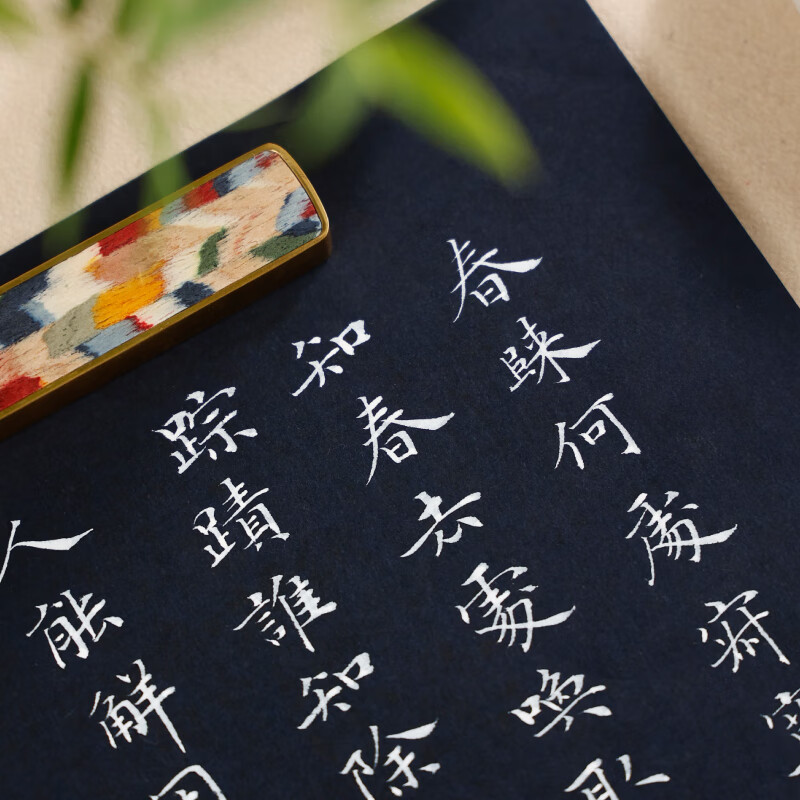 春歸何處寂
知春去處喚取
踪蹟誰知除
人能解因